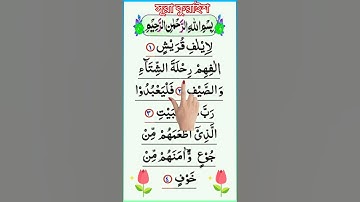 সূরা কুরাইশ
بِسْمِ اللهِ الرَّحْمٰنِ الرَّحِيْمِ
لِاِيْلٰفِ قُرَيْشٍ ١
اٖلٰفِهِمْ رِحْلَةَ الشِّتَآءِ
وَالصَّيْفِ ٢ فَلْيَعْبُدُوْا
رَبَّ الْبَيْتِ ٣
الَّذِيْٓ اَطْعَمَهُمْ مِّنْ
جُوْعٍ وَّاٰمَنَهُمْ مِّنْ
خَوْفٍ ٤